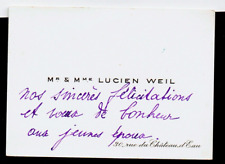 Mr & Mme LUCIEN WEIL
nos sincères félicitations
et vœux de bonheur
aux jeunes époux.
30, rue du Château d'Eau